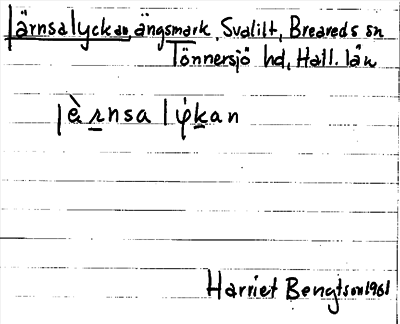 Järnsalyckan ängsmark, Svalilt, Breareds sn
Tönnersjö hd, Hall. län
jὲrnsa lykan
Harriet Bengtson 1961